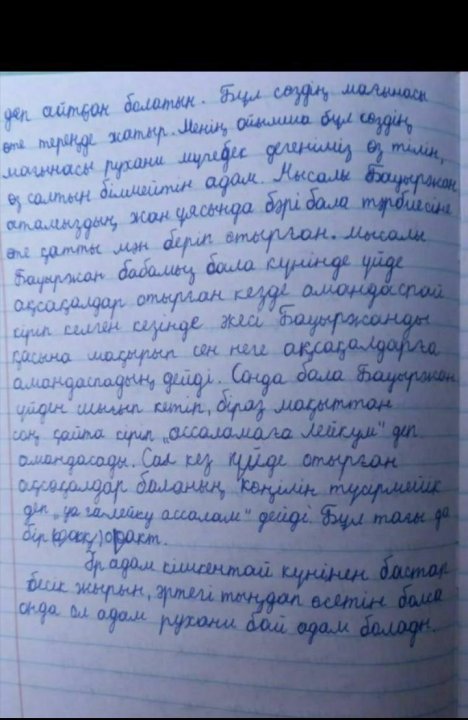 деп айтқан болатын. Бұл сөздің мағынасы
өте тереңде жатыр. Менің ойымша бұл сөздің
мағынасы рухани мүгебек дегеніміз өз тілін,
өз салтын білмейтін адам. Мысалы Бауыржан
атамыздың жан ұясында бәрі бала тәрбиесіне
өте қатты мән беріп отырған. Мысалы
Бауыржан бабамыз бала күнінде үйде
ақсақалдар отырған кезде амандаспай
кіріп келген кезінде әкесі Бауыржанды
қасына шақырып сен неге ақсақалдарға
амандаспадың дейді. Сонда бала Бауыржан
үйден шығып кетіп, біраз уақыттан
соң қайта кіріп „ассаламаға лейкум" деп
амандасады. Сол кез үйде отырған
ақсақалдар баланың көңілін түсірмейік
деп „уағалейку ассалам" дейді. Бұл тағы да
бір факт.
Әр адам кішкентай күнінен бастап
бесік жырын, ертегі тыңдап өсетін болса
онда ол адам рухани бай адам болады.